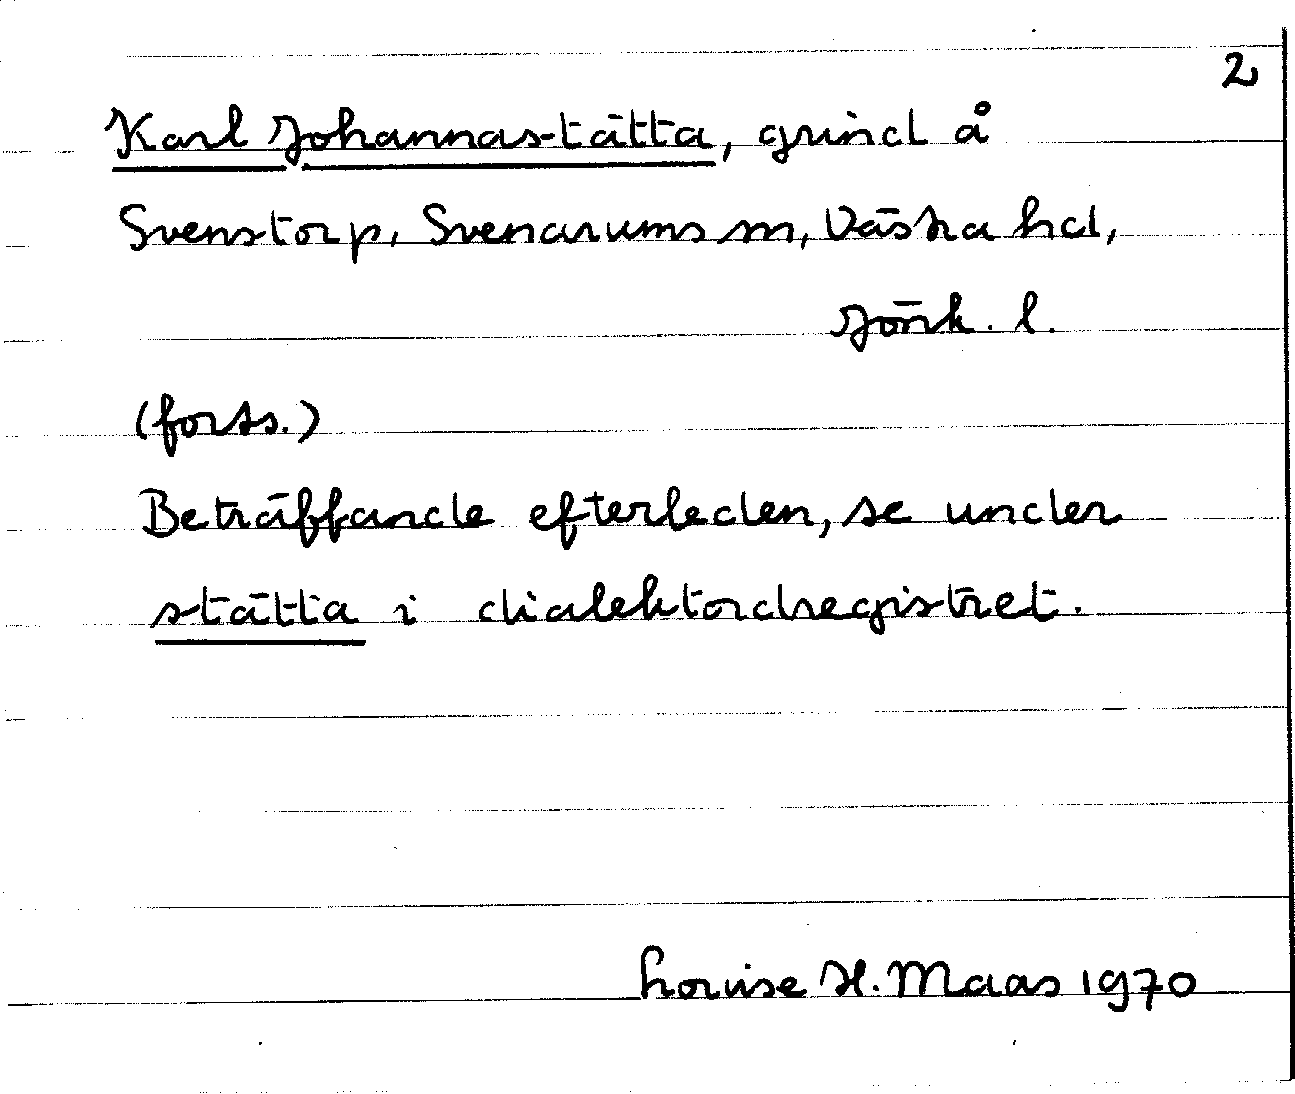 2
Karl Johannas-tätta, grind å
Svenstorp, Svenarums sn, Västra hd,
Jönk. l.
(forts.)
Beträffande efterleden, se under
stätta i dialektordregistret.
Louise H. Maas 1970